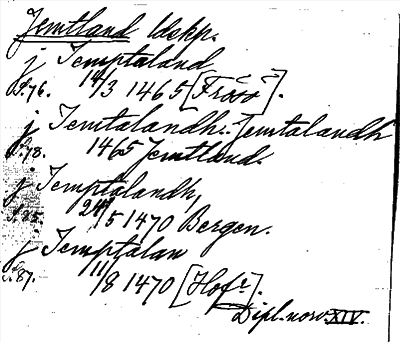 Jemtland ldskp.
j Temptaland
S.76. 14/3 1465 [Frösö].
j Jemtalandh. Jemtalandh
S.78. 1465 Jemtland.
j Jemptalandh
S.85. 24/5 1470 Bergen.
j Jemptalan
S.87. 11/8 1470 [Hof].
Dipl. norv. XIV.